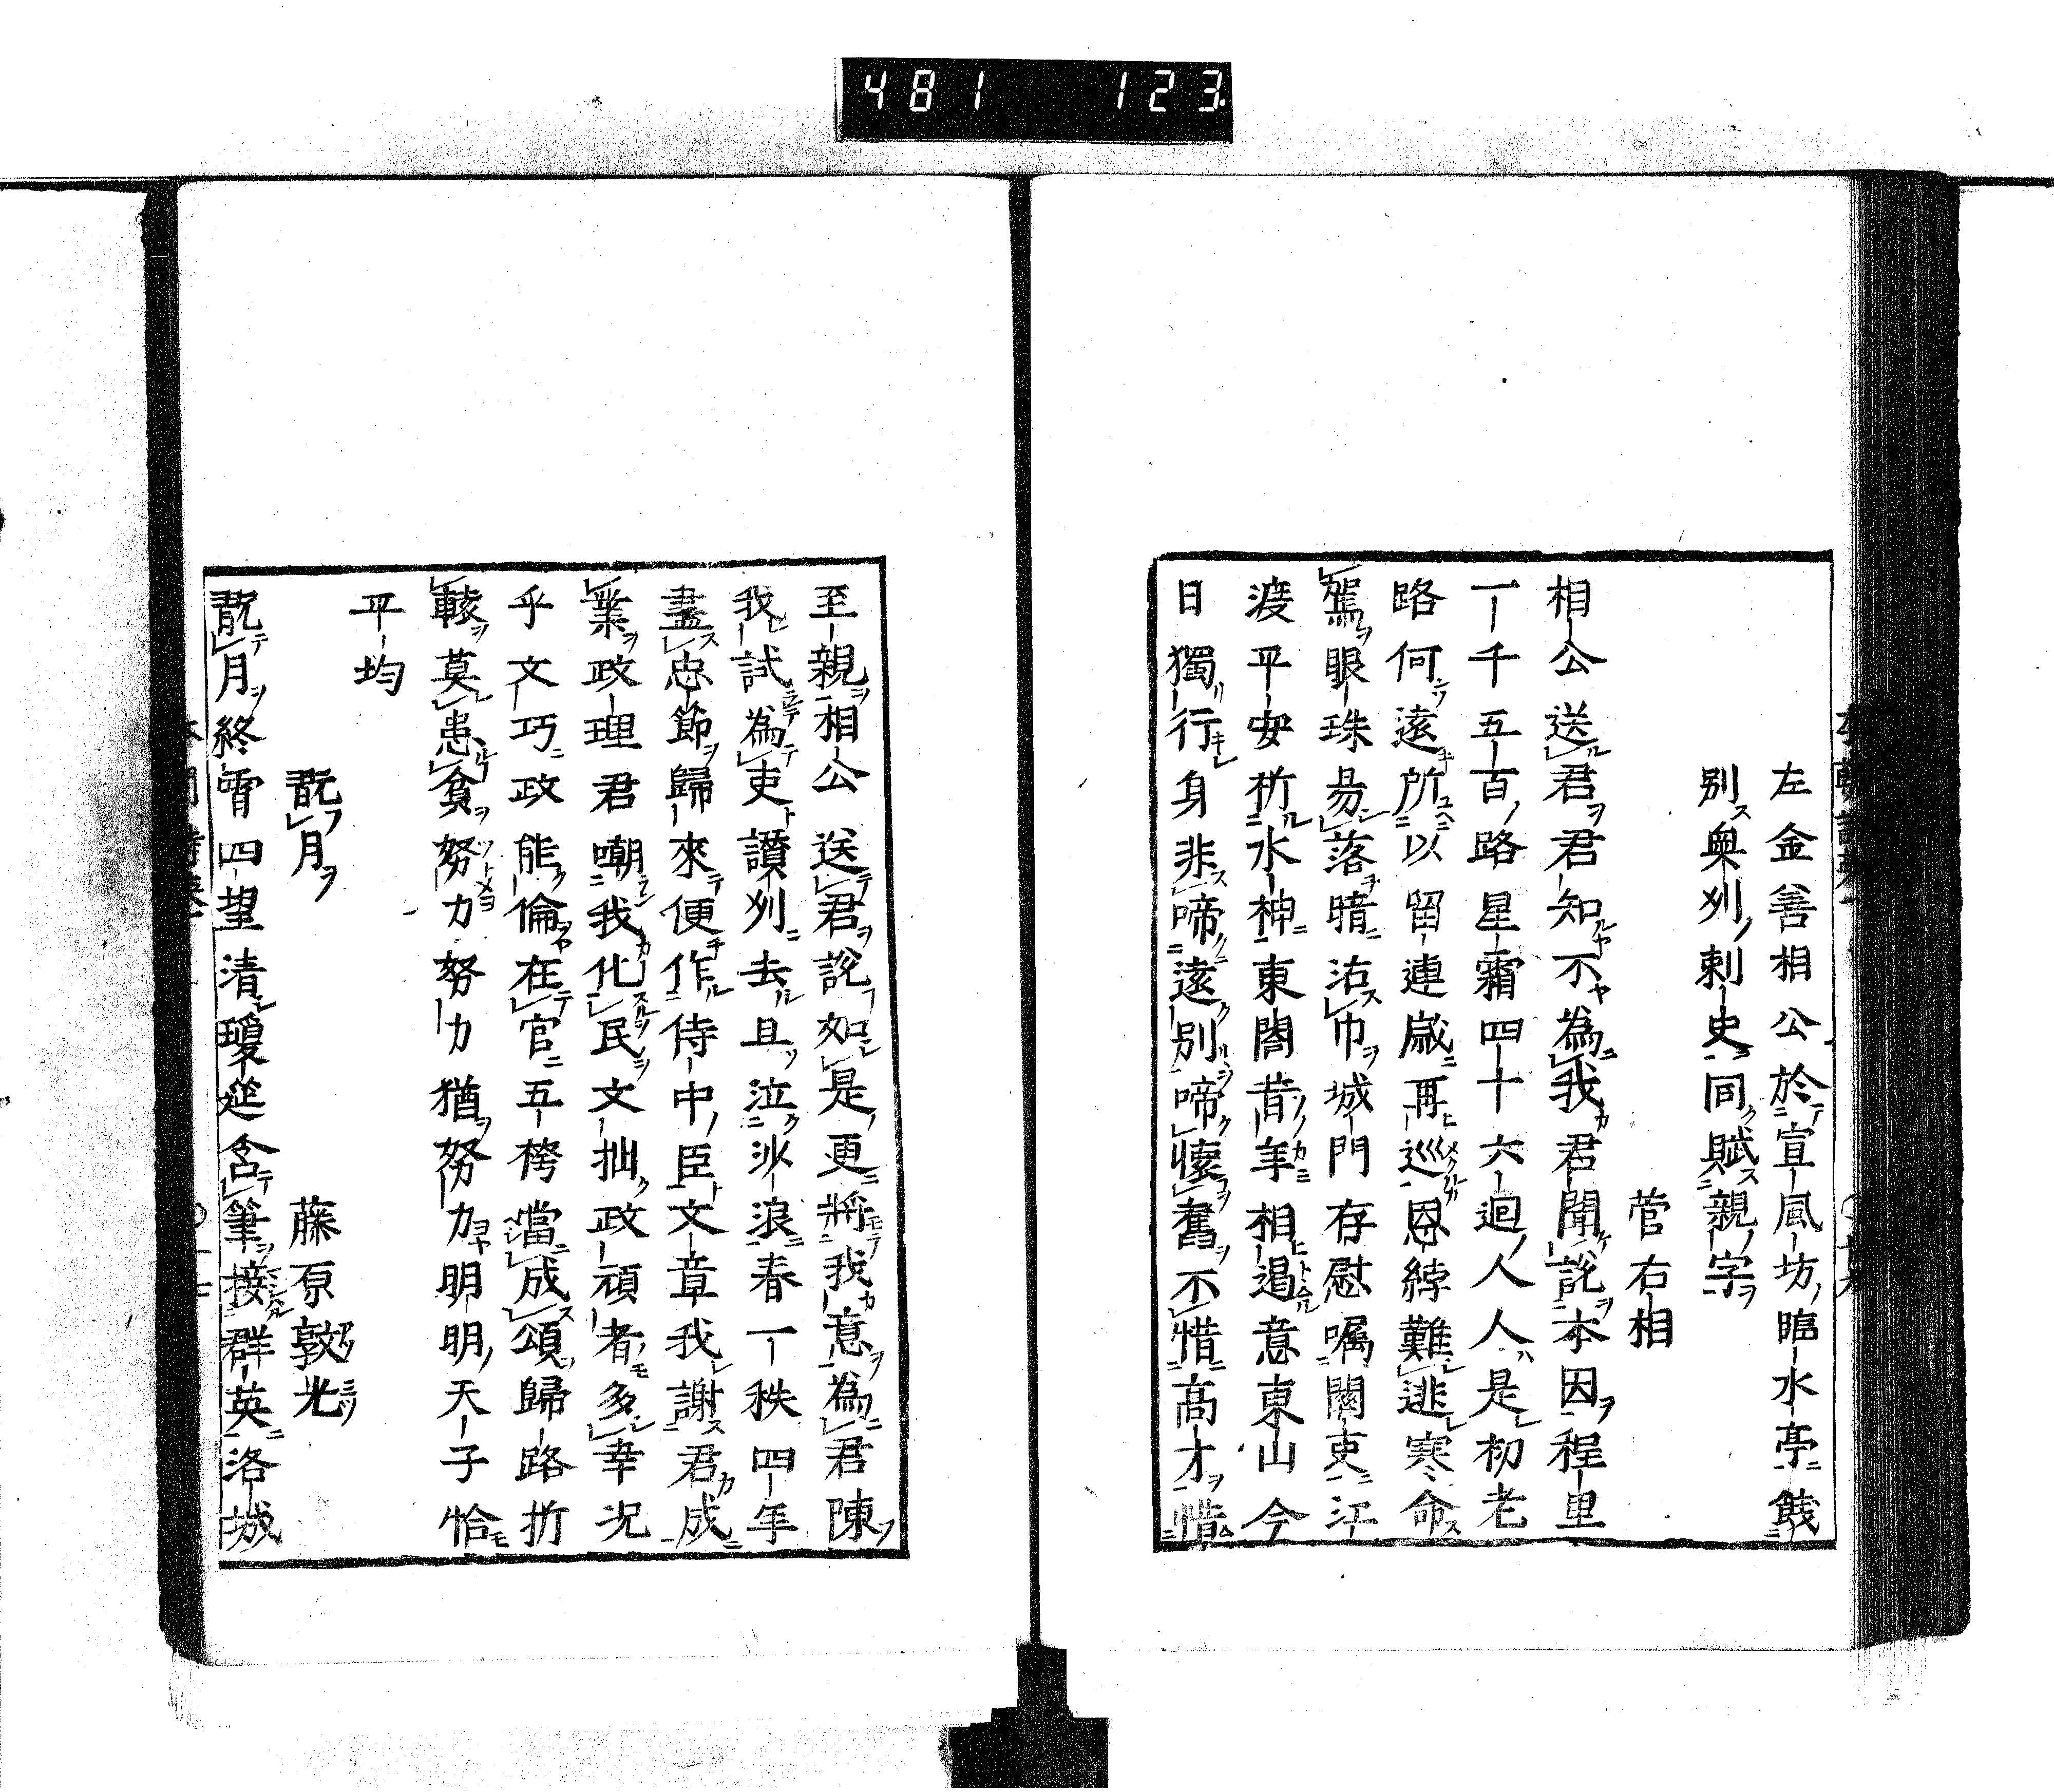 481 123
左金吾相公於宣風坊臨水亭餞
別奥州刺史同賦親字
菅右相
相公送君君知不為我君聞說本因程里
一千五百路星霜四十六迴人人是初老
路何遠所以留連歲再巡恩緈難逃寒命
駕眼珠易落暗沾巾城門存慰嘱關吏江
渡平安祈水神東閤昔年相遇意東山今
日獨行身非啼遠別啼懷舊不惜高才惜
至親相公送君說如是更將我意為君陳
我試為吏讃州去且泣沙浪春一秩四年
盡忠節歸來便作侍中臣文章我謝君成
業政理君嘲我化民文拙政頑者多幸況
乎文巧政能倫在官五袴當成頌歸路折
轅莫患貧努力努力猶努力明明天子恰
平均
翫月
藤原敦光
翫月終霄四望清瓊莚含筆接群英洛城